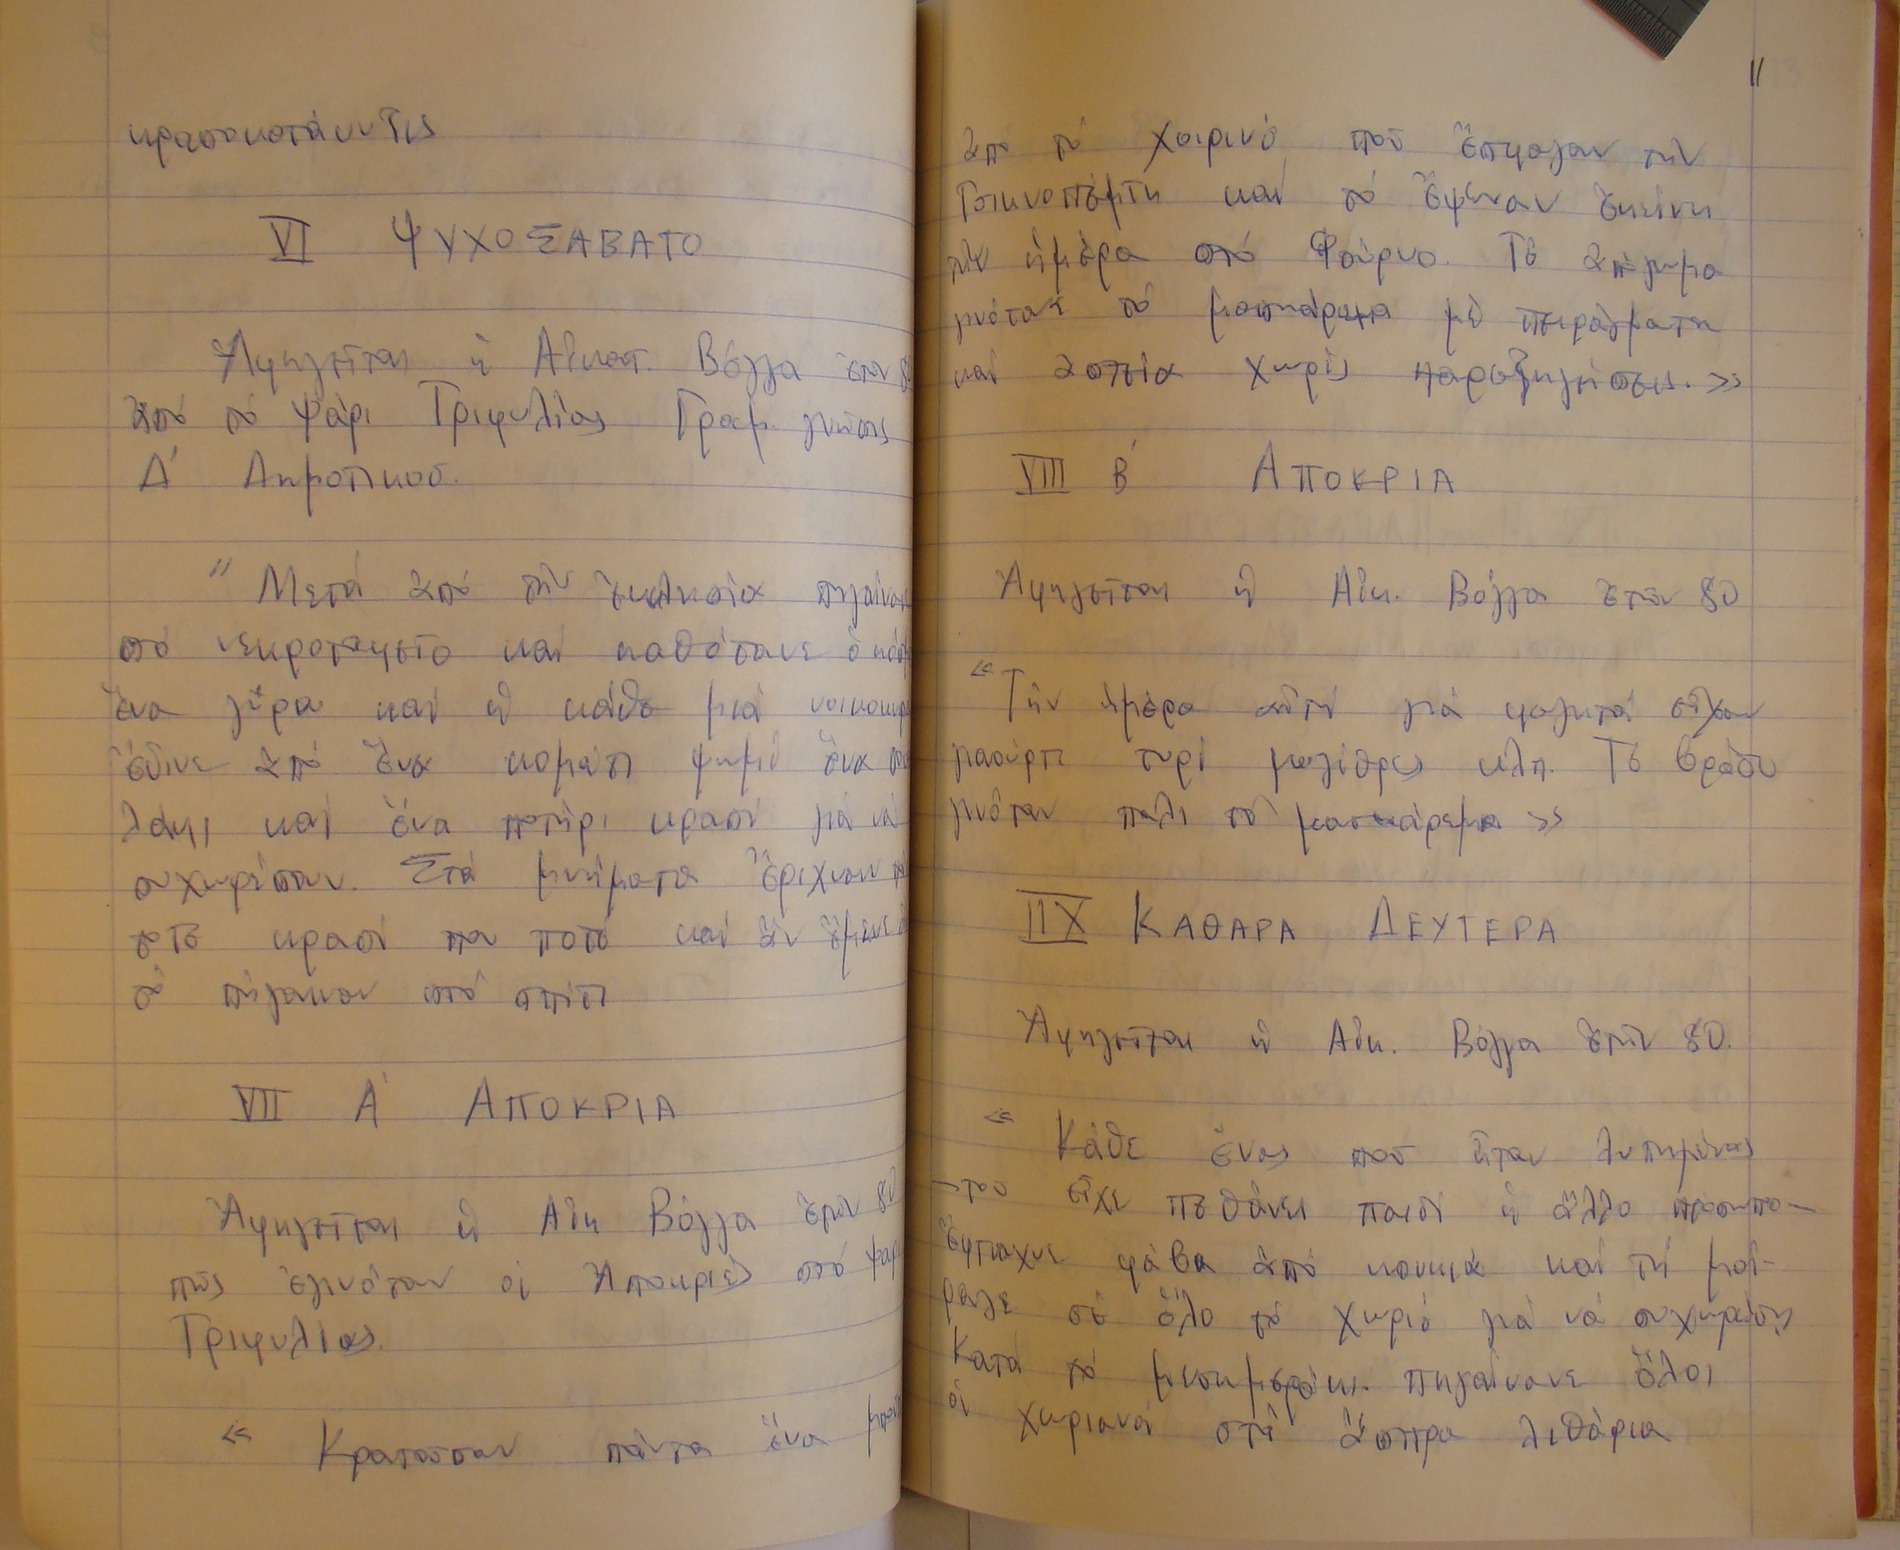 κρασοκατάνυξις
VI ΨΥΧΟΣΑΒΑΤΟ
Ἀφηγεῖται ἡ Αἰκατ. Βόγγα ἐτῶν 80
ἀπό τό Ψάρι Τριφυλίας Γραμ. γνώσεις
Δ' Δημοτικοῦ.
" Μετά ἀπό τήν ἐκκλησία πηγαίναν
στό νεκροταφεῖο καί καθότανε ὁ
ἕνα γῦρο καί ἡ κάθε μιά
ἔδινε ἀπό ἕνα κομάτι ψωμί ἕνα
λάκι καί ἕνα ποτήρι κρασί γιά νά
συχωρέσουν. Στά μνήματα ἔριχναν
οτε κρασί που ποτέ καί ἄν ἔμενε
τό πήγαιναν στό σπίτι
VII Α' ΑΠΟΚΡΙΑ
Ἀφηγεῖται ἡ Αἰκ Βόγγα ἐτῶν 80
πῶς ἐγινόταν οἱ Ἀποκριές στό Ψάρι
Τριφυλίας.
« Κρατοῦσαν πάντα ἕνα
11
ἀπό τό χοιρινό πού ἔσφαζαν τήν
Τσικνοπέμτη καί τό ἔψηναν ἐκείνη
τήν ἡμέρα στό Φοῦρνο. Τό ἀπόγιομα
γινόταν τό μασκάρεμα μέ πειράγματα
καί ἀστεῖα χωρίς παρεξηγήσεις. »
VIII Β' ΑΠΟΚΡΙΑ
Ἀφηγεῖται ἡ Αἰκ. Βόγγα ἐτῶν 80
« Τήν ἡμέρα αὐτή γιά φαγητά εἶχαν
γιαούρτι τυρί μυζίθρες κλπ. Τό βράδυ
γινόταν πάλι τό μασκάρεμα »
IIX ΚΑΘΑΡΑ ΔΕΥΤΕΡΑ
Ἀφηγεῖται ἡ Αἰκ. Βόγγα ἐτῶν 80.
« Κάθε ἕνας πού ἦταν λυπημένος
-του εἶχε πεθάνει παιδί ἤ ἄλλο πρόσωπο-
ἔφτιαχνε φάβα ἀπό κουκιά καί τή μοί-
ραζε σέ ὅλο τό χωριό γιά νά συχωρέσει
Κατά τό μεσημεράκι πηγαίνανε ὅλοι
οἱ χωριανοί στά ἄσπρα λιθάρια